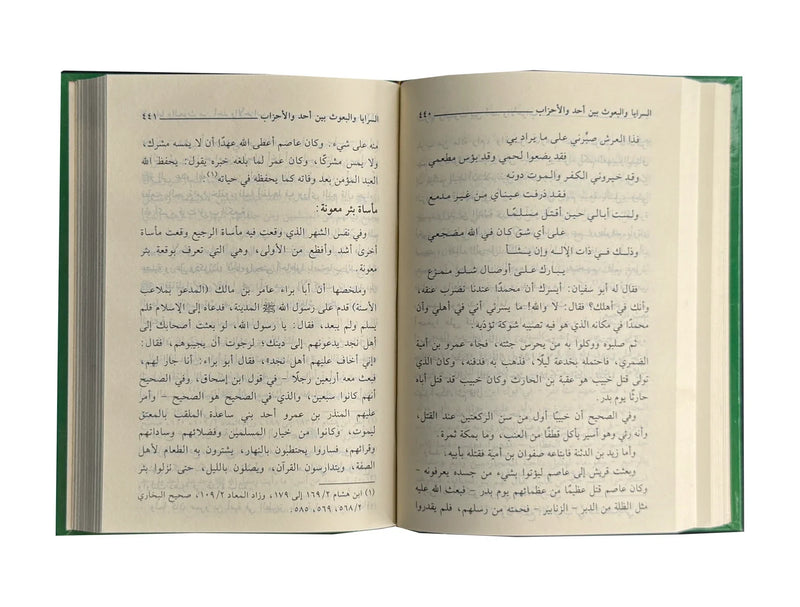 السرايا والبعوث بين أحد والأحزاب ٤٤٠
فذا العرش صبّرني على ما يراد بي
فقد بضعوا لحمي وقد بؤس مطعمي
وقد خيروني الكفر والموت دونه
فقد ذرفت عيناي من غير مدمع
ولست أبالي حين أقتل مسلمًا
على أي شق كان في الله مضجعي
وذلك في ذات الإله وإن يشأ
يبارك على أوصال شلو ممزع
فقال له أبو سفيان: أيسرك أن محمدًا عندنا تضرب عنقه،
وأنك في أهلك؟ فقال: لا والله! ما يسرني أني في أهلي وأن
محمدًا في مكانه الذي هو فيه تصيبه شوكة تؤذيه.
ثم صلبوه ووكلوا به من يحرس جثته، فجاء عمرو بن أمية
الضمري، فاحتمله بخدعة ليلًا، فذهب به فدفنه، وكان الذي
تولى قتل خبيب هو عقبة بن الحارث وكان خبيب قد قتل أباه
حارثًا يوم بدر.
وفي الصحيح أن خبيبًا أول من سن الركعتين عند القتل،
وأنه رئي وهو أسير يأكل قطفًا من العنب، وما بمكة ثمرة.
وأما زيد بن الدثنة فابتاعه صفوان بن أمية فقتله بأبيه.
وبعثت قريش إلى عاصم ليؤتوا بشيء من جسده يعرفونه -
وكان عاصم قتل عظيمًا من عظمائهم يوم بدر - فبعث الله عليه
مثل الظلة من الدبر - الزنابير - فحمته من رسلهم، فلم يقدروا
السرايا والبعوث بين أحد والأحزاب ٤٤١
منه على شيء. وكان عاصم أعطى الله عهدًا أن لا يمسه مشرك،
ولا يمس مشركًا، وكان عمر لما بلغه خبره يقول: يحفظ الله
العبد المؤمن بعد وفاته كما يحفظه في حياته(١).
مأساة بئر معونة:
وفي نفس الشهر الذي وقعت فيه مأساة الرجيع وقعت مأساة
أخرى أشد وأفظع من الأولى، وهي التي تعرف بوقعة بئر
معونة.
وملخصها أن أبا براء عامر بن مالك (المدعو بملاعب
الأسنة) قدم على رسول الله ﷺ المدينة، فدعاه إلى الإسلام فلم
يسلم ولم يبعد، فقال: يا رسول الله، لو بعثت أصحابك إلى
أهل نجد يدعونهم إلى دينك؛ لرجوت أن يجيبوهم، فقال:
«إني أخاف عليهم أهل نجد»، فقال أبو براء: أنا جار لهم،
فبعث معه أربعين رجلًا - في قول ابن إسحاق، وفي الصحيح
أنهم كانوا سبعين، والذي في الصحيح هو الصحيح - وأمر
عليهم المنذر بن عمرو أحد بني ساعدة الملقب بالمعنق
ليموت، وكانوا من خيار المسلمين وفضلائهم وساداتهم
وقرائهم، فساروا يحتطبون بالنهار، يشترون به الطعام لأهل
الصفة، ويتدارسون القرآن، ويصلون بالليل، حتى نزلوا بئر
(١) ابن هشام ١٦٩/٢ إلى ١٧٩، وزاد المعاد ١٠٩/٢، صحيح البخاري
٥٦٨/٢، ٥٦٩، ٥٨٥.